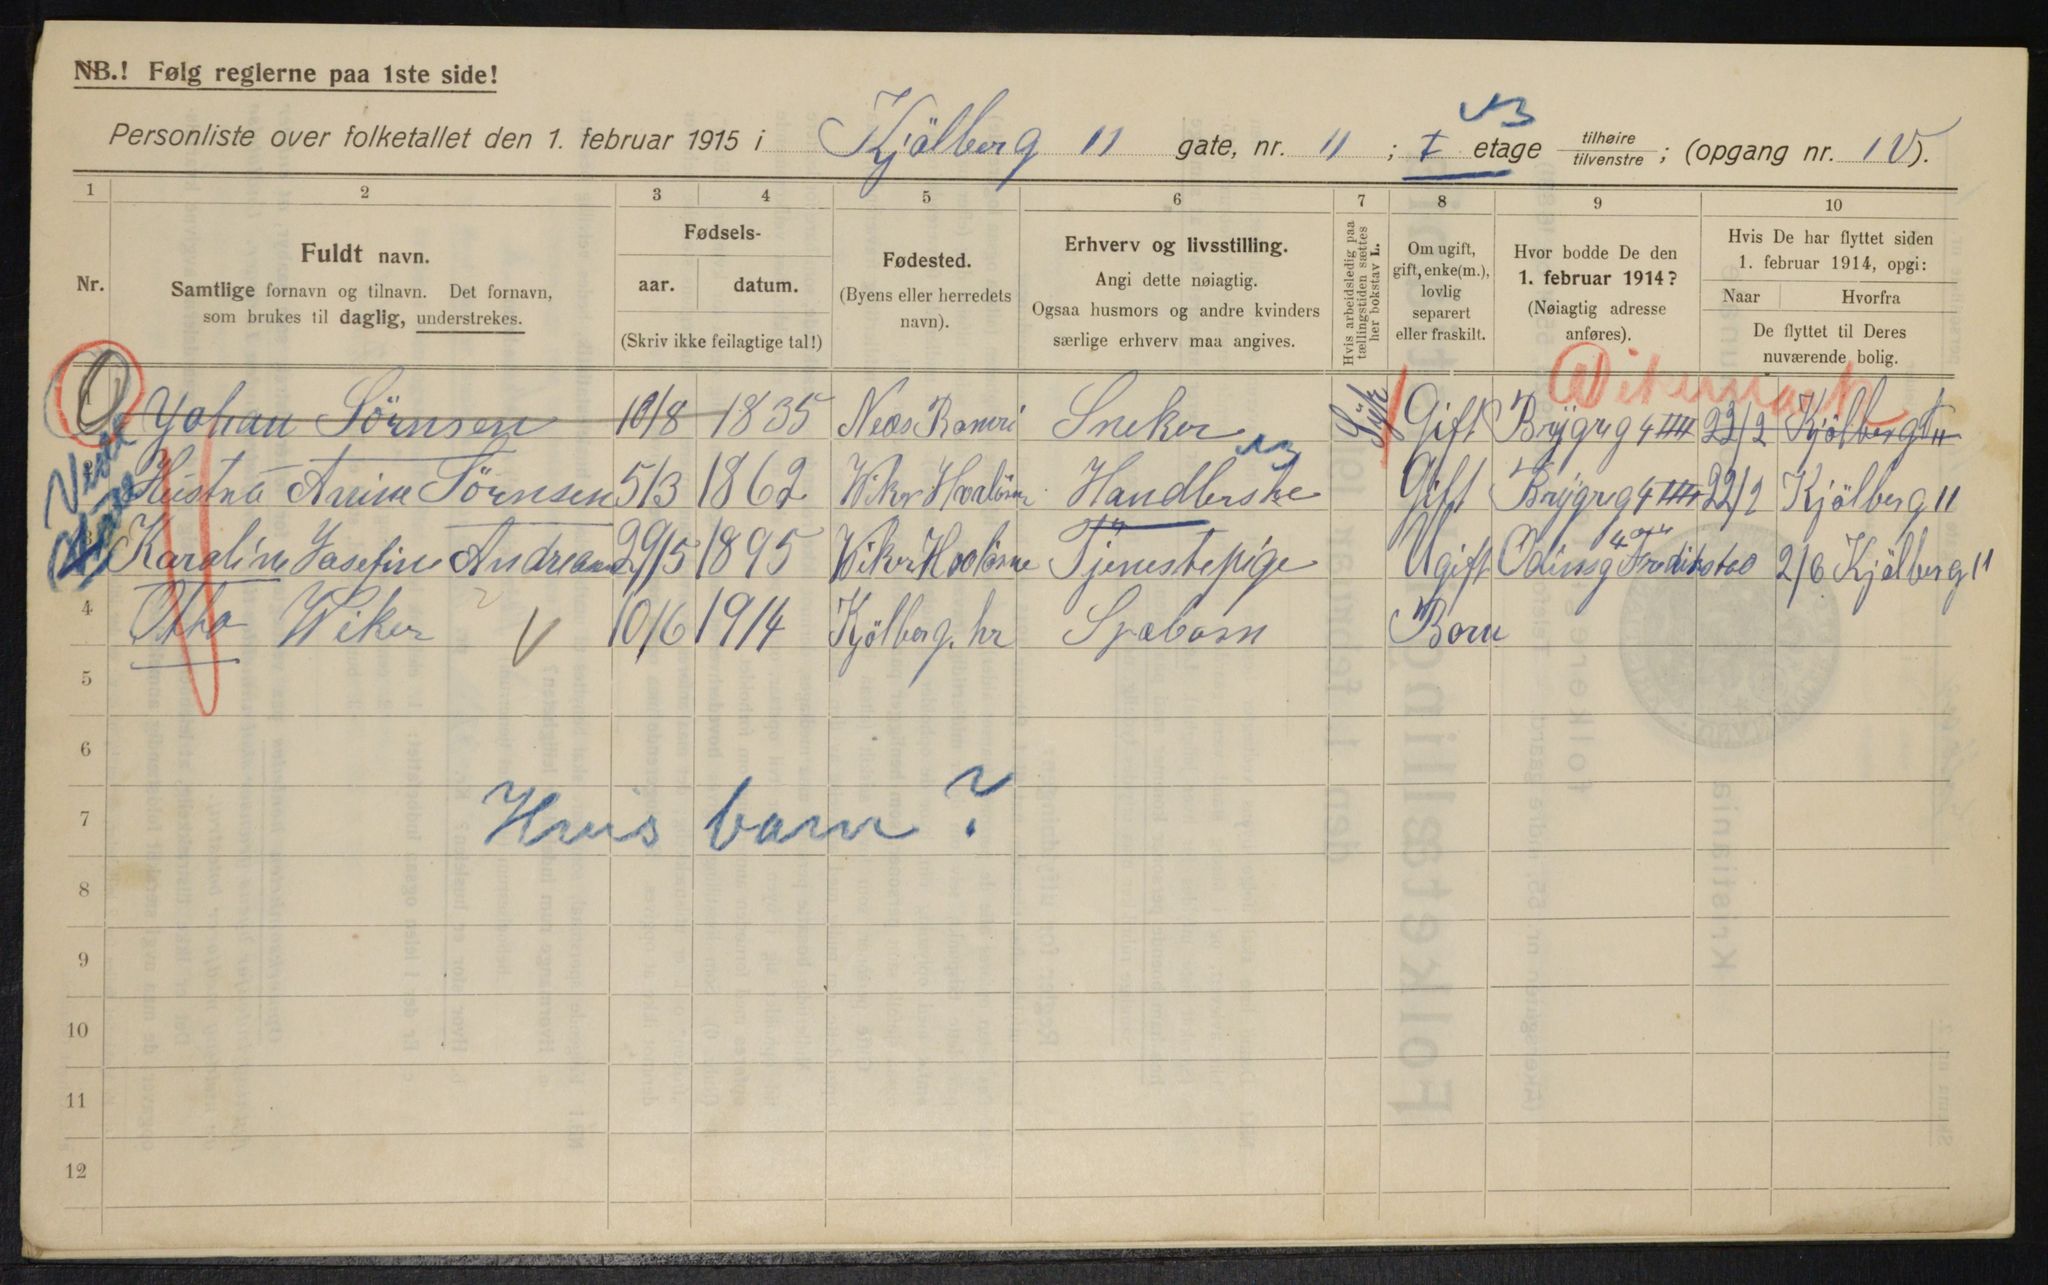 NB.! Følg reglerne paa 1ste side!
Personliste over folketallet den 1. februar 1915 i Kjölberg 11 gate, nr. 11 ; I etage tilhøire tilvenstre ; (opgang nr. IV).
1 2 3 4 5 6 7 8 9 10
Nr.
Fuldt navn.
Samtlige fornavn og tilnavn. Det fornavn,
som brukes til daglig, understrekes.
Fødsels-
aar. datum.
(Skriv ikke feilagtige tal!)
Fødested.
(Byens eller herredets
navn).
Erhverv og livsstilling.
Angi dette nøiagtig.
Ogsaa husmors og andre kvinders
særlige erhverv maa angives.
Hvis arbeidsledig paa
tællingstiden sættes
her bokstav L.
Om ugift,
gift, enke(m.),
lovlig
separert
eller fraskilt.
Hvor bodde De den
1. februar 1914?
(Nøiagtig adresse
anføres).
Hvis De har flyttet siden
1. februar 1914, opgi:
Naar Hvorfra
De flyttet til Deres
nuværende bolig.
1 Yohan Sörnsen 10/8 1835 Neos Sneker Syk Gift Brygrg 4 IIII 22/2 Kjölberg 11
Anine Sörnsen 5/3 1862 Wiker Handlerske Gift Brygrg 4 IIII 22/2 Kjölberg 11
3 Karoline Josefine 29/5 1895 Wiker Tjenestepige Ugift Odinsg 4 Fredikstad 2/6 Kjölberg 11
4 Otho Wiker V 10/6 1914 Kjölberg. hr Spabarn Barn
5
6
7 Hvis barn?
8
9
10
11
12